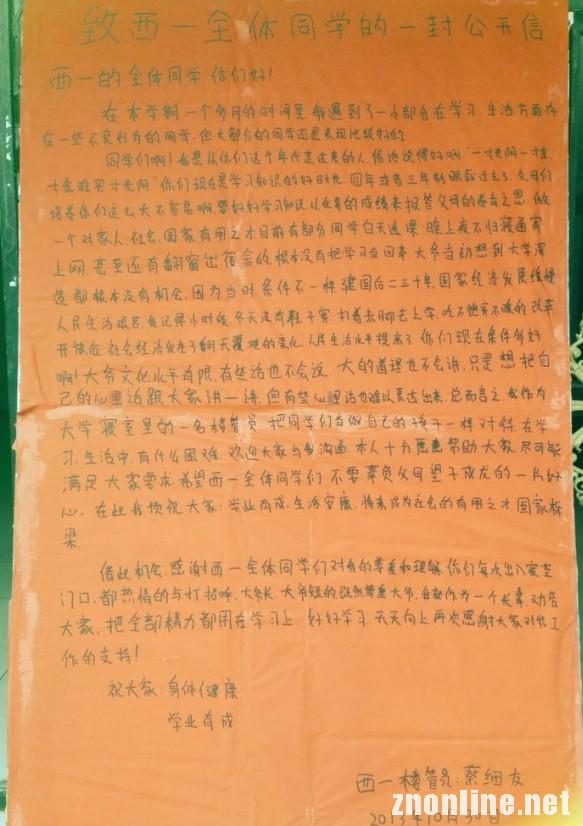 致西一全体同学的一封公开信
西一的全体同学 你们好!
在本学期一个多月的时间里我遇到了一小部分在学习.生活方面存
在一些不良行为的同学.但大部分的同学还是表现比较好的
同学们啊!我是从你们这个年代走过来的人.俗话说得好啊,"一寸光阴一寸金
寸金难买寸光阴"你们现在是学习知识的好时光.四年或者三年转眼就过去了.父母们
培养你们这么大不容易啊.要好好学习知识以优异的成绩来报答父母的养育之恩.做
一个对家人.社会.国家有用之才.目前有部分同学白天逃课.晚上夜不归寝通宵
上网.甚至还有翻窗出宿舍的.根本没有把学习当回事.大爷当初想到大学深
造都根本没有机会.因为当时条件不一样.建国后二三十年.国家经济发展缓慢
人民生活艰苦.我记得小时候.冬天没有鞋子穿.打着赤脚去上学.吃不饱穿不暖的.改革
开放后.社会经济发生了翻天覆地的变化.人民生活水平提高了.你们现在条件多好
啊!大爷文化水平有限.有些话也不会说.大的道理也不会讲.只是想把自
己的心里话跟大家讲一讲.但有些心里话也难以表达出来.总而言之.我作为
大学寝室里的一名楼管员.把同学们当做自己的孩子一样对待.在学
习.生活中.有什么困难.欢迎大家与我沟通.本人十分愿意帮助大家.尽可能
满足大家要求.希望西一全体同学们不要辜负父母望子成龙的一片好
心.在此我预祝大家:学业有成.生活安康.将来成为社会的有用之才.国家栋
梁.
借此机会.感谢西一全体同学们对我的尊重和理解.你们每次出入寝室
门口.都热情的与打招呼.大爷长.大爷短的.既然尊重大爷.我就作为一个长辈.劝告
大家.把全部精力都用在学习上.好好学习.天天向上.再次感谢大家对我工
作的支持!
祝大家:身体健康
学业有成
西一楼管员:蔡细友
2013年10月30日
znonline.net